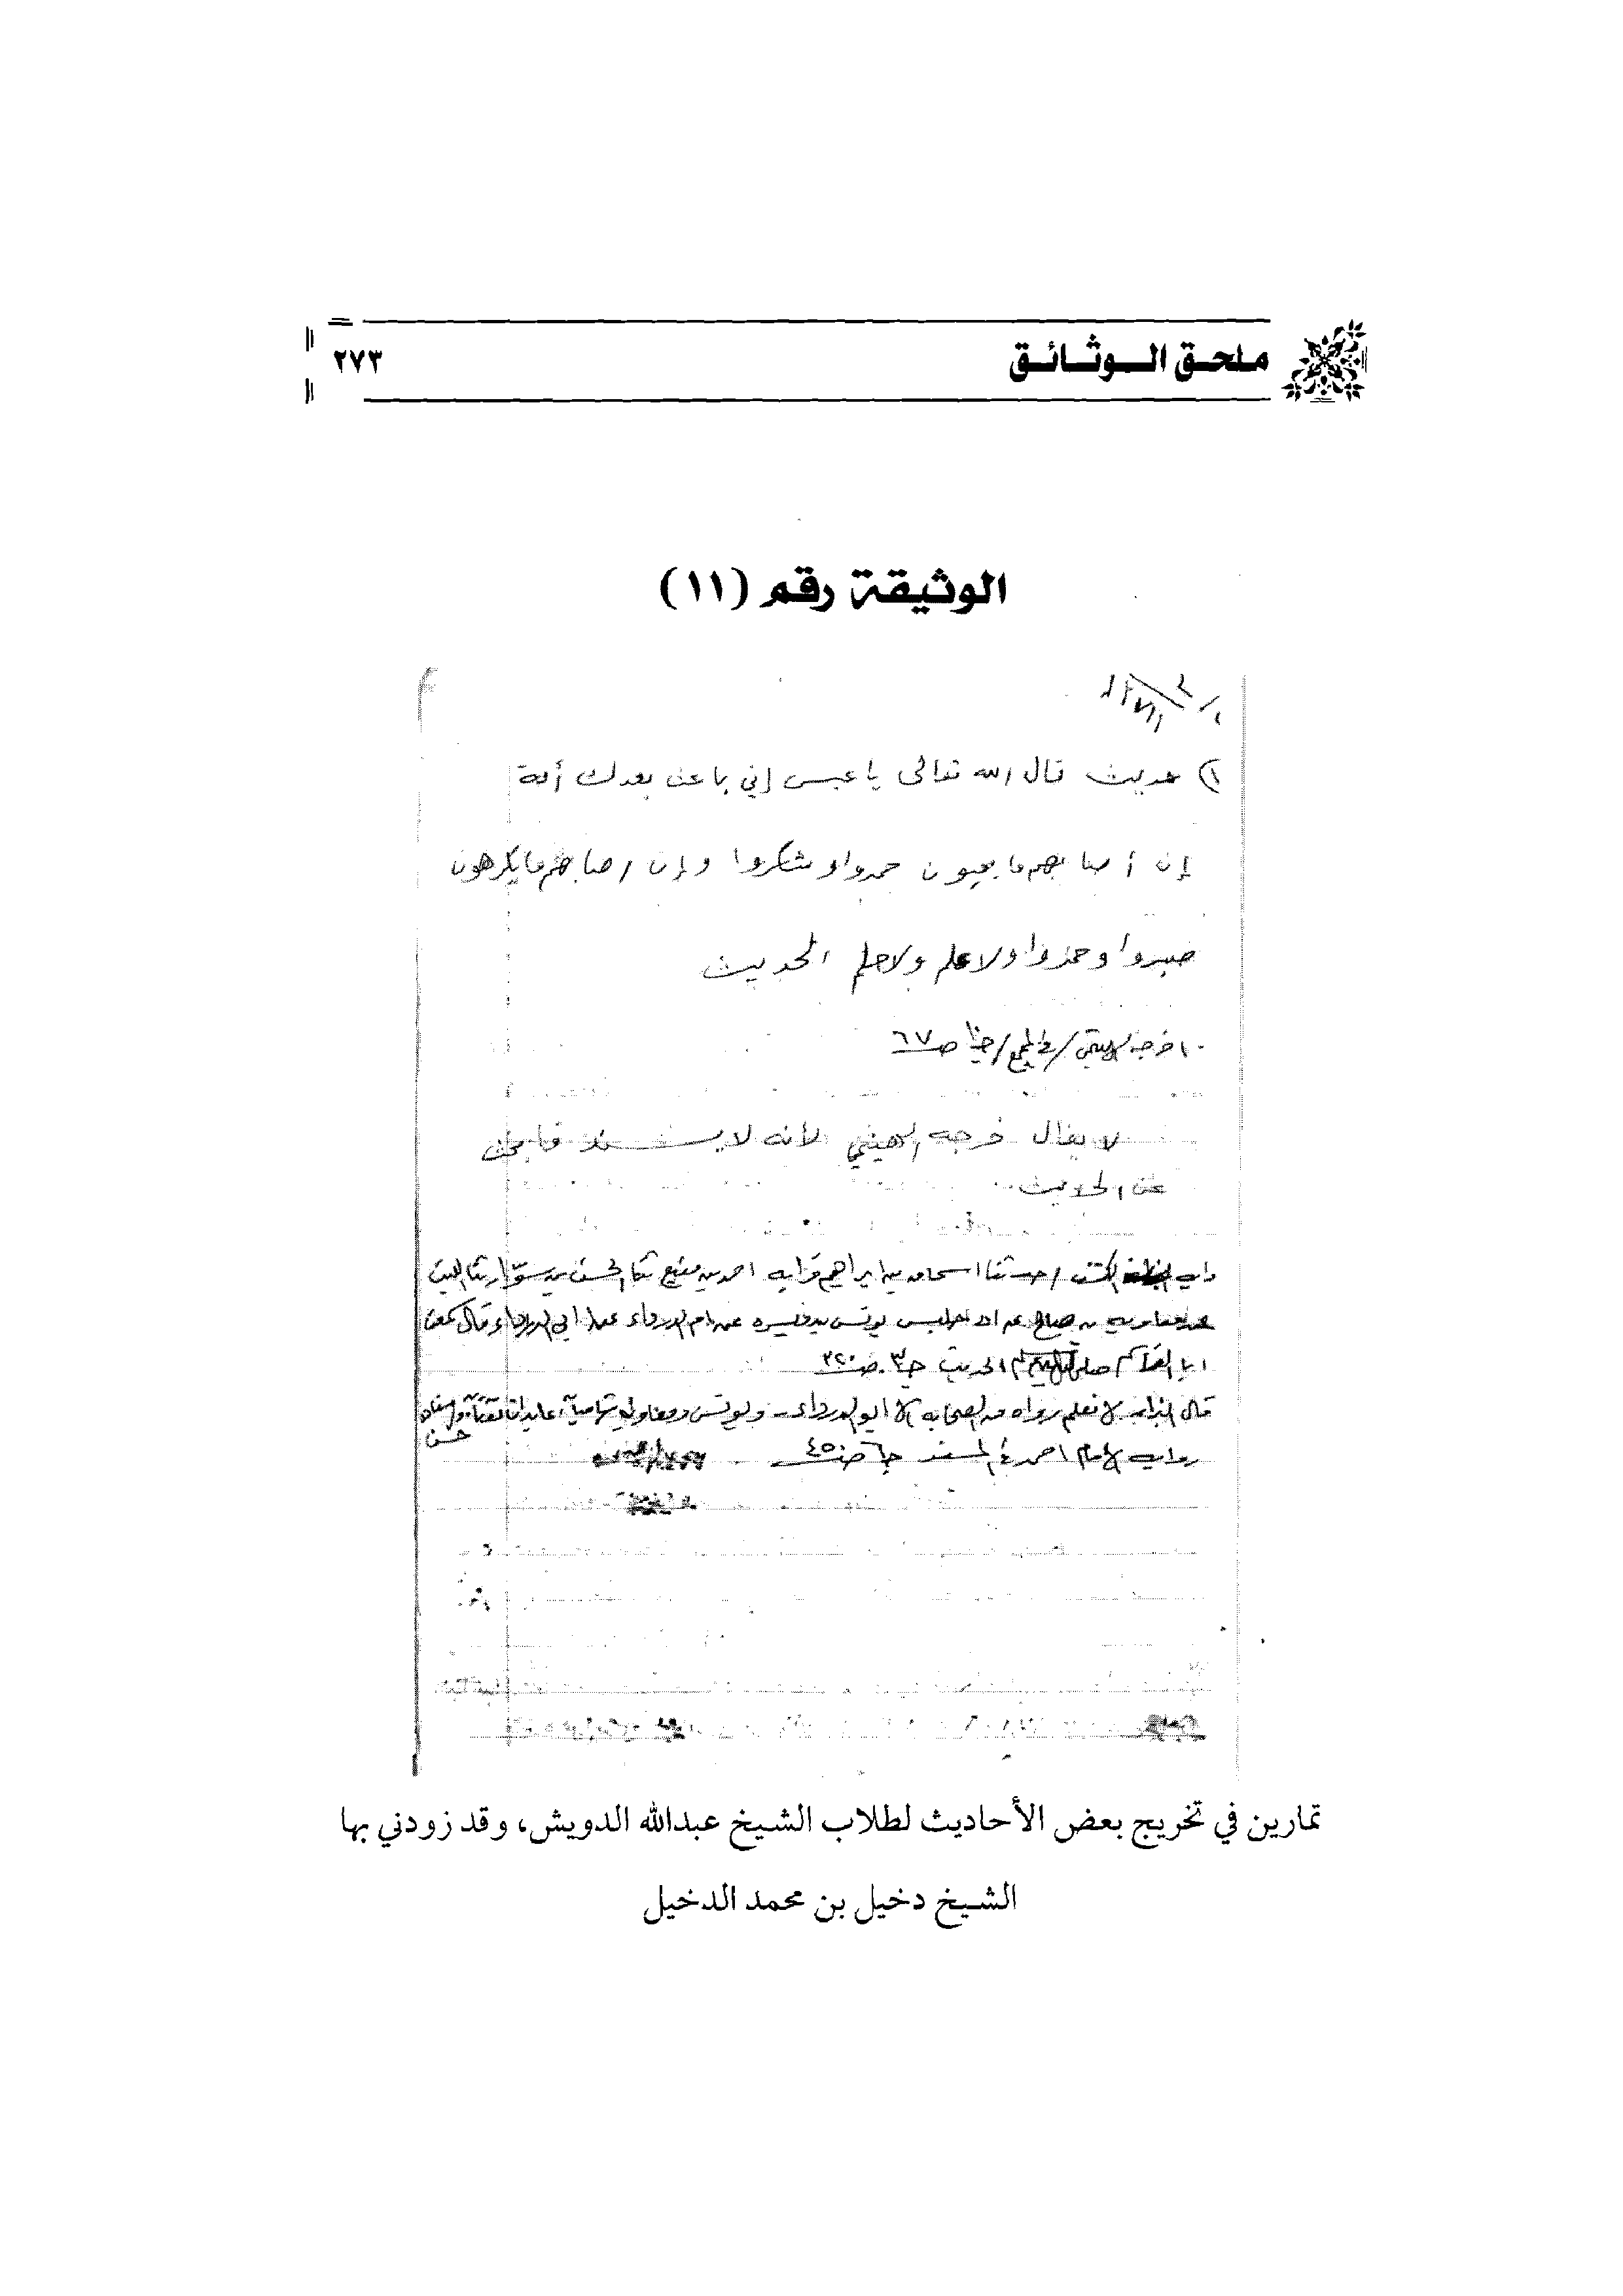 ملحق الوثائق
٢٧٣
الوثيقة رقم (١١)
١) حديث قال الله تعالى يا عيسى إني باعث بعدك أمة
إن أصابهم ما يحبون حمدوا وشكروا وإن أصابهم ما يكرهون
صبروا وحمدوا ولا علم ولا حلم الحديث
اخرجه الهيثمي في المجمع ص ٦٧
لا يقال خرجه الهيثمي لأنه لا يسند فابحث
عن الحديث
الكشف حدثنا اسحاق بن ابراهيم قرابه احمد بن منيع ثنا الحسن بن سوار ثنا الليث
عن معاويه بن صالح عن ابي حلبس يونس بن ميسره عن ام الدرداء عن ابي الدرداء قال سمعت
ابا القاسم صلى الله عليه وسلم الحديث ج٣ ص٣٢٠
قال البزار لا نعلم رواه من الصحابه الا ابو الدرداء ويونس ومعاويه شاميان عابدان ثقتان واسناده
حسن
رواه الامام احمد في المسند ج٦ ص٤٥٠
تمارين في تخريج بعض الأحاديث لطلاب الشيخ عبدالله الدويش، وقد زودني بها
الشيخ دخيل بن محمد الدخيل